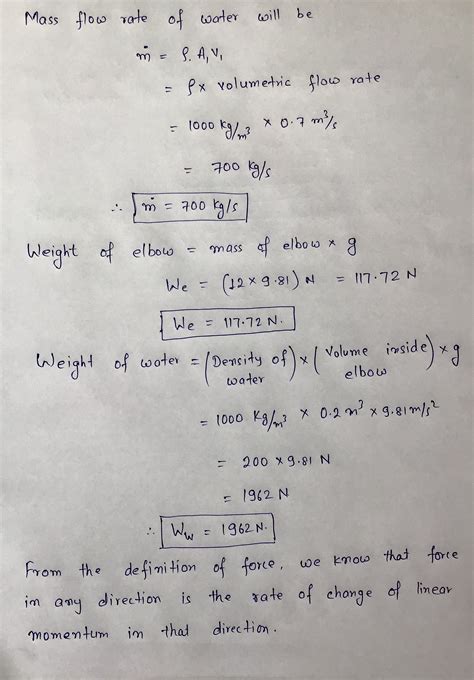 Mass flow rate of water will be
ṁ = ρ. A₁ V₁
= ρ x volumetric flow rate
= 1000 kg/m³ x 0.7 m³/s
= 700 kg/s
∴ ṁ = 700 kg/s
Weight of elbow = mass of elbow x g
We = (12 x 9.81) N = 117.72 N
We = 117.72 N.
Weight of water = (Density of water) x (Volume inside elbow) x g
= 1000 kg/m³ x 0.2 m³ x 9.81 m/s²
= 200 x 9.81 N
= 1962 N
∴ Ww = 1962 N.
From the definition of force, we know that force
in any direction is the rate of change of linear
momentum in that direction.